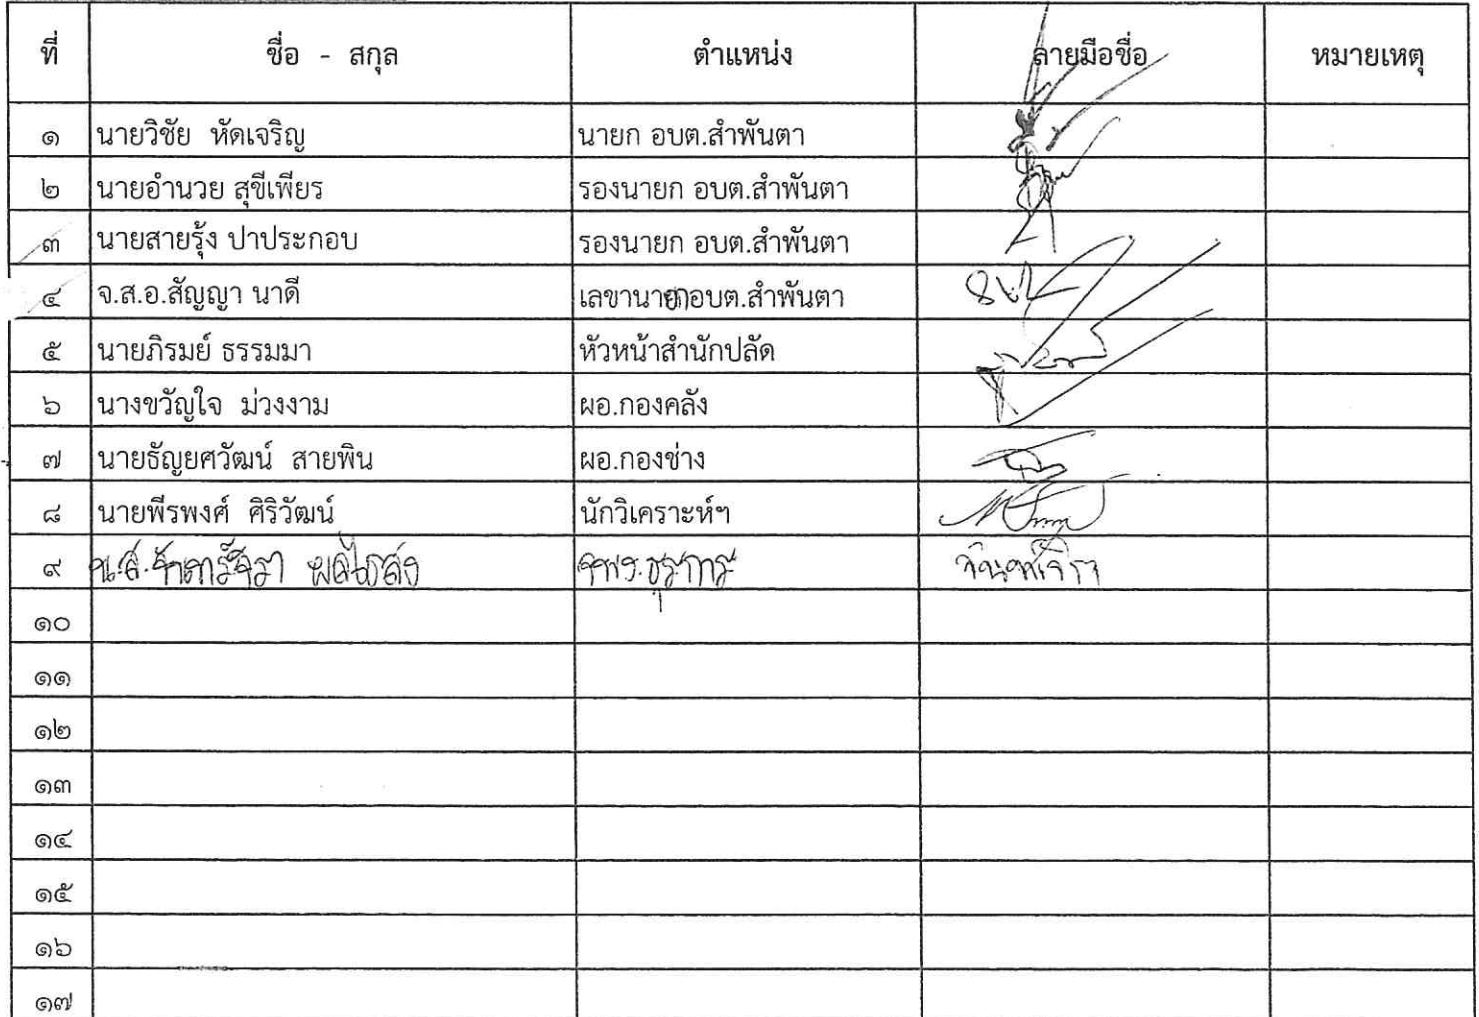 ที่ ชื่อ - สกุล ตำแหน่ง ลายมือชื่อ หมายเหตุ
๑ นายวิชัย หัดเจริญ นายก อบต.สำพันตา
๒ นายอำนวย สุขีเพียร รองนายก อบต.สำพันตา
๓ นายสายรุ้ง ปาประกอบ รองนายก อบต.สำพันตา
๔ จ.ส.อ.สัญญา นาดี เลขานายกอบต.สำพันตา
๕ นายภิรมย์ ธรรมมา หัวหน้าสำนักปลัด
๖ นางขวัญใจ ม่วงงาม ผอ.กองคลัง
๗ นายธัญยศวัฒน์ สายพิน ผอ.กองช่าง
๘ นายพีรพงศ์ ศิริวัฒน์ นักวิเคราะห์ฯ
๙ น.ส. จพง.ธุรการ
๑๐
๑๑
๑๒
๑๓
๑๔
๑๕
๑๖
๑๗